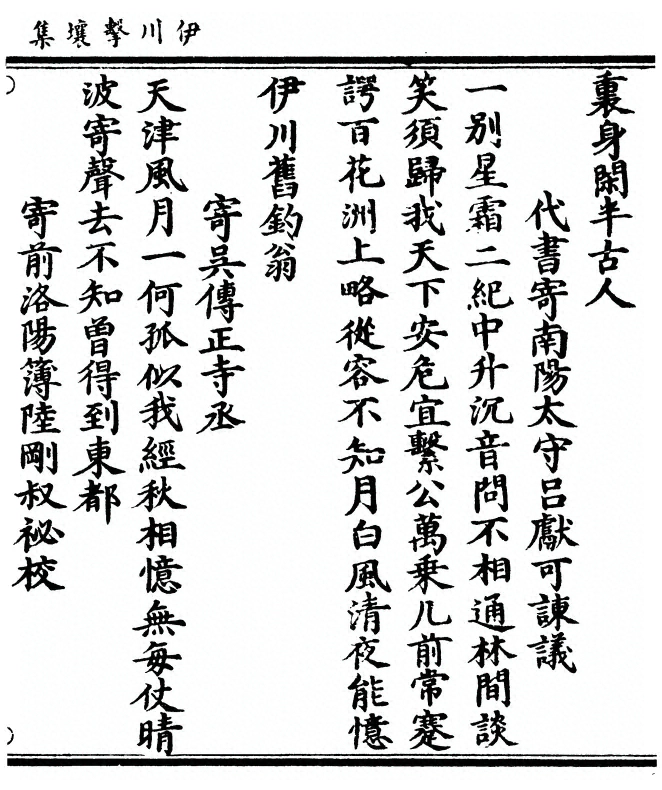 伊川擊壤集
裏身閑半古人
代書寄南陽太守呂獻可諫議
一別星霜二紀中升沉音問不相通林間談
笑須歸我天下安危宜繫公萬乗几前常蹇
諤百花洲上略從容不知月白風清夜能憶
伊川舊釣翁
寄吳傳正寺丞
天津風月一何孤似我經秋相憶無每仗晴
波寄聲去不知曽得到東都
寄前洛陽簿陸剛叔祕校